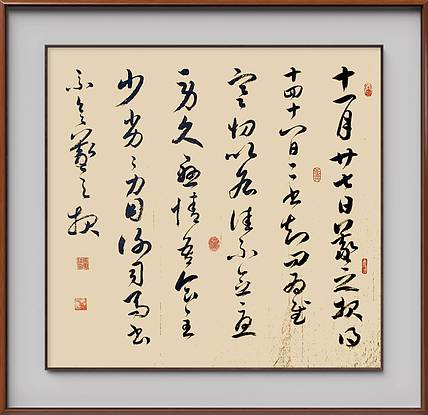 十一月廿七日羲之報得
十四十八日二書知問為慰
寒切比各佳不念憂
勞久懸情吾食至
少劣劣力因謝司馬書
不具羲之報